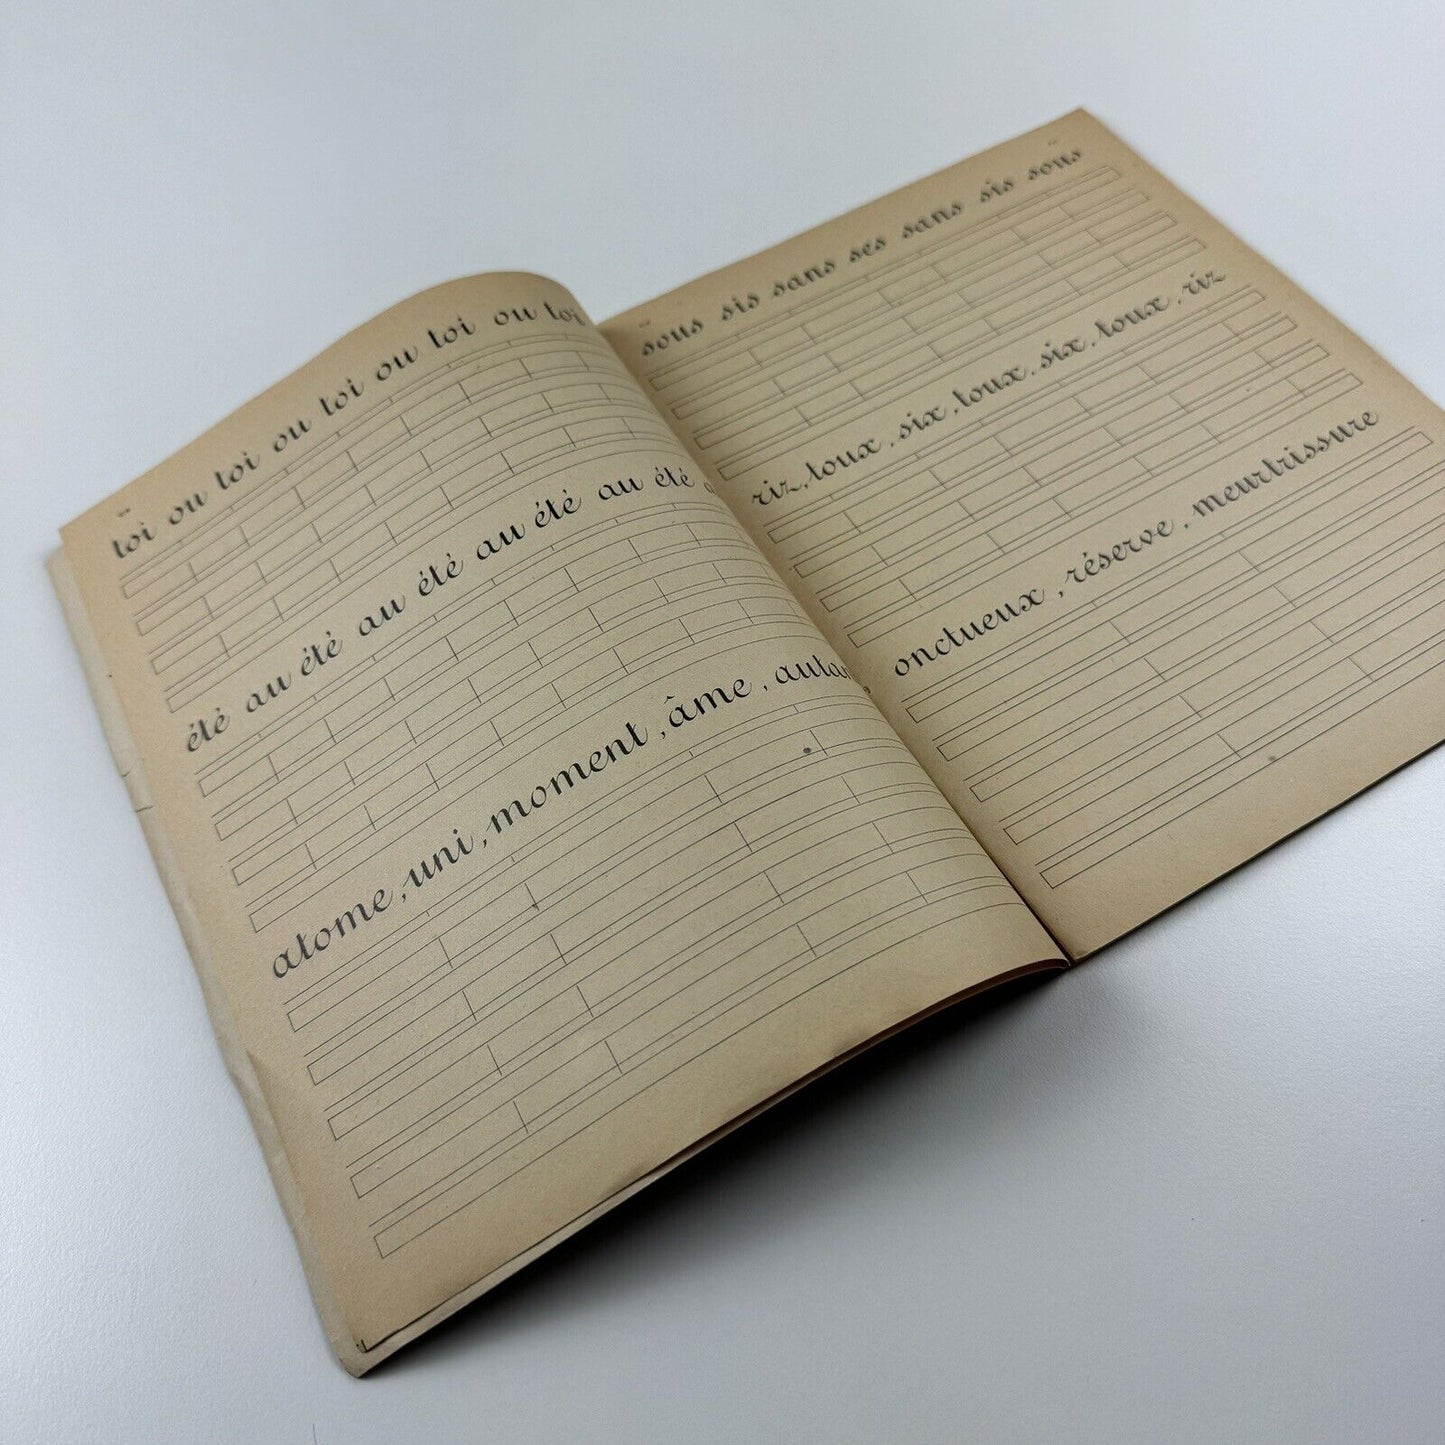 toi ou toi ou toi ou toi ou toi
été au été au été au été au été
atome, uni, moment, âme,
sous sis sans ses sans sis sous
riz, toux, six, toux, six, toux, riz
onctueux, réserve, meurtrissure